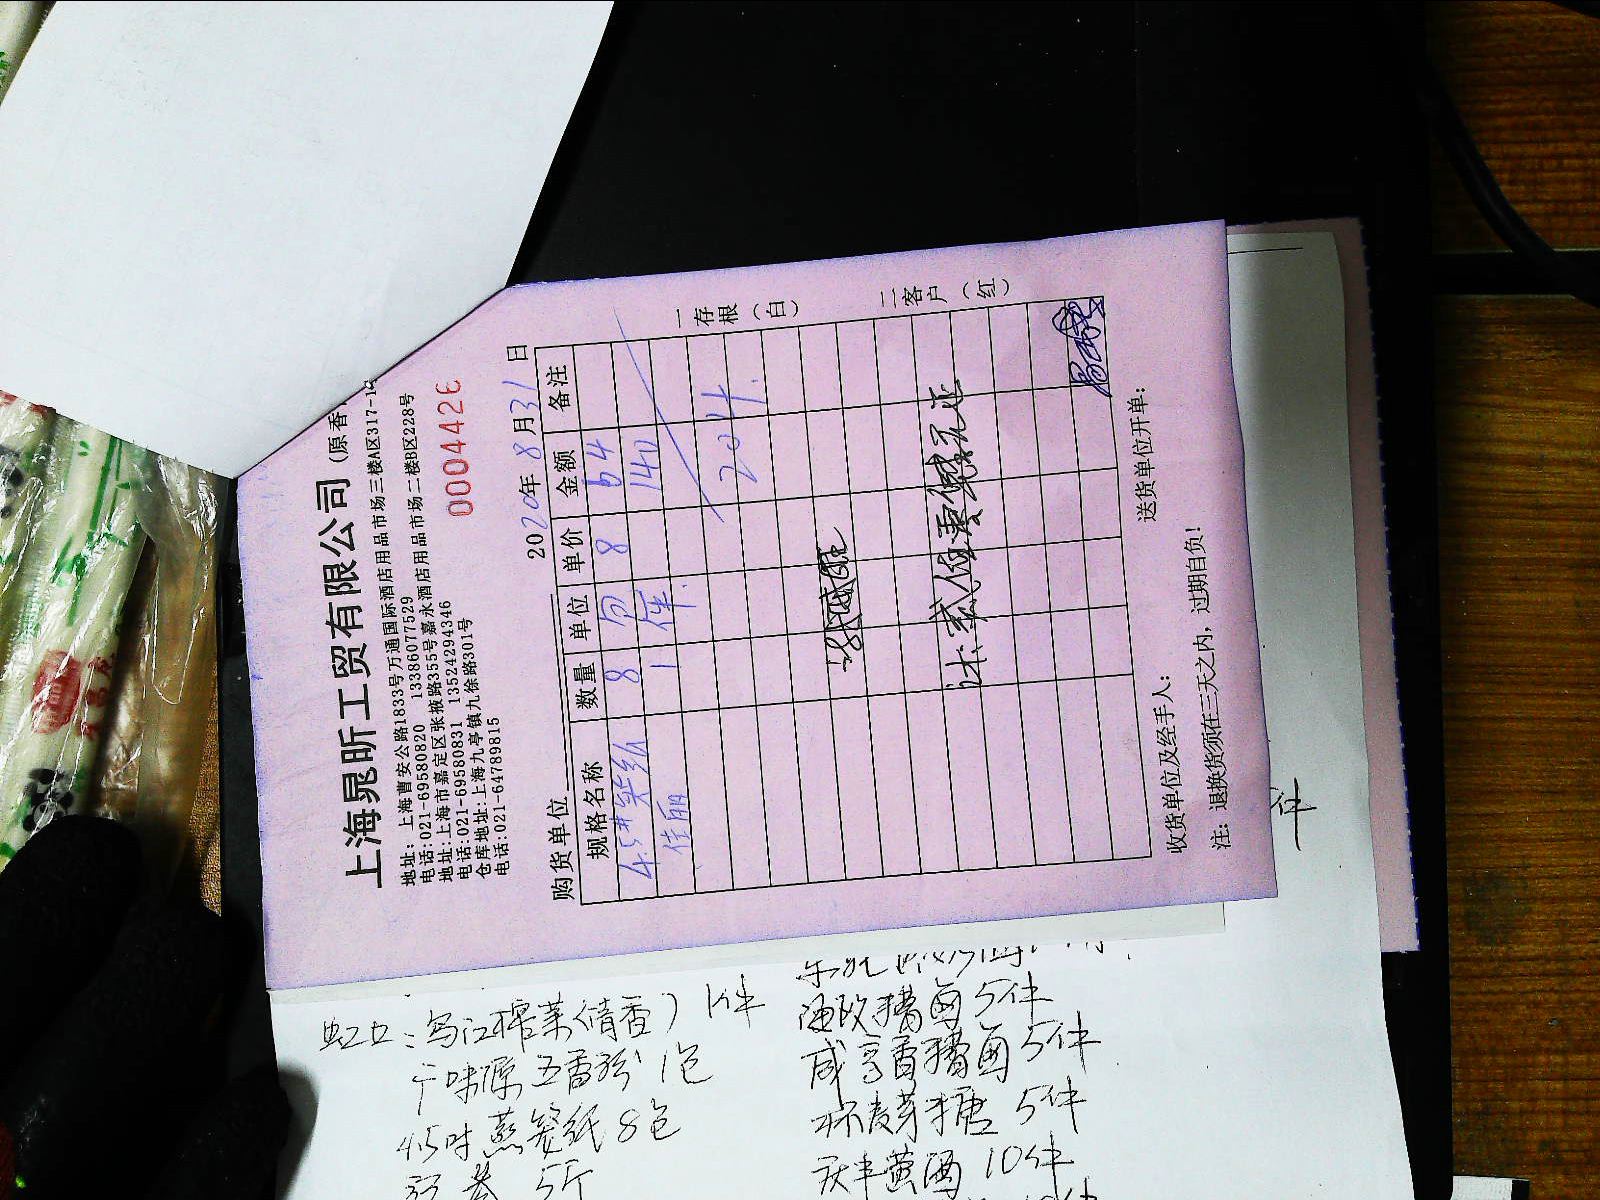 上海晁昕工贸有限公司（原香
地址：上海曹安公路1833号万通国际酒店用品市场三楼A区317-19
电话:021-69580820 13386077529
地址:上海市嘉定区张掖路355号嘉永酒店用品市场二楼B区228号
电话:021-69580831 13524294346
仓库地址:上海九亭镇九徐路301号
电话:021-64789815
000442
购货单位
2020年8月31日
规格名称 数量 单位 单价 金额 备注
4.5#蒸笼纸 8 包 8 64
佳丽 1 件 140
204.
一存根（白）
二客户（红）
收货单位及经手人：
送货单位开单：
注：退换货须在三天之内，过期自负！
件
虹口：乌江榨菜（清香）1件
味源五香粉 1包
4.5吋蒸笼纸 8包
5斤
糟卤 5件
咸亨香糟卤 5件
麦芽糖 5件
黄酒 10件